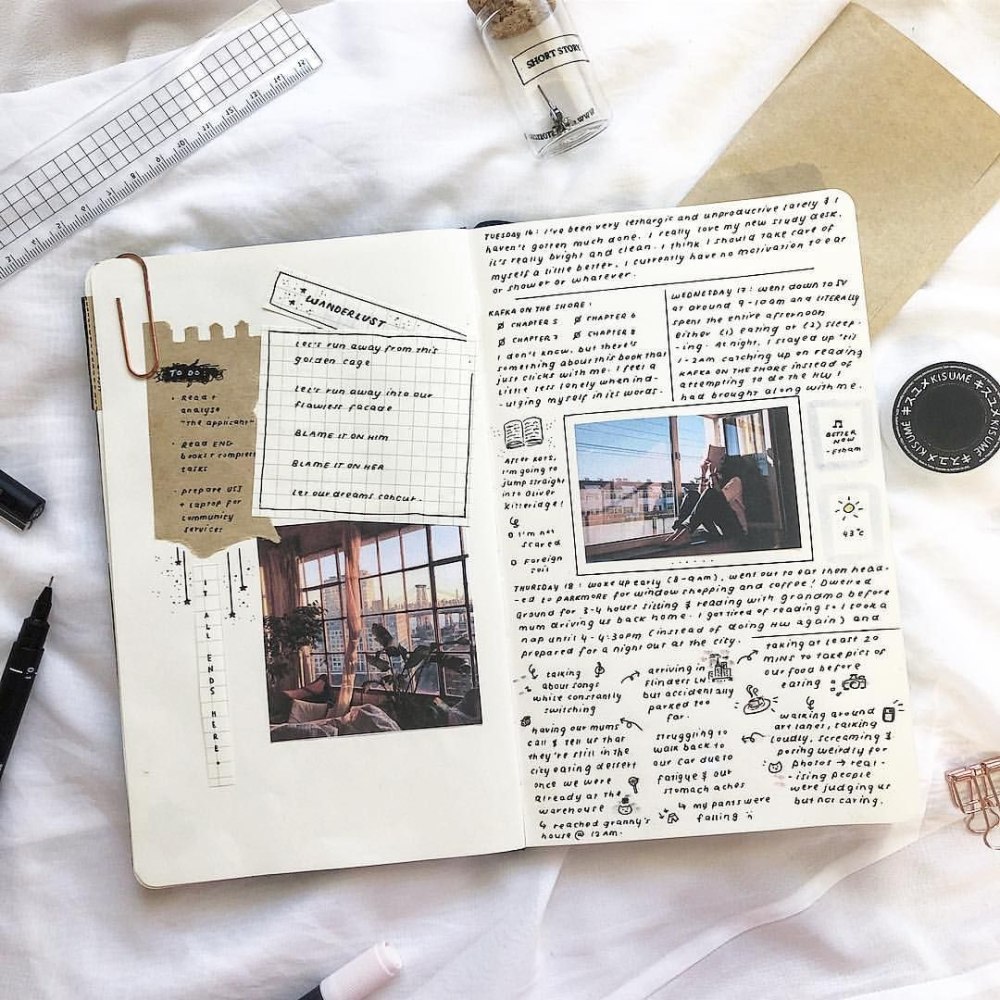 SHORT STORY
WANDERLUST
Let's run away from this
golden cage
Let's run away into our
flawless facade
BLAME IT ON HIM
BLAME IT ON HER
Let our dreams concur.
TO DO:
• Read +
analyse
"the applicant"
• Read ENG
books + complete
tasks
• prepare USI
+ laptop for
community
services
IT ALL ENDS HERE
TUESDAY 16: I've been very lethargic and unproductive lately & I
haven't gotten much done. I really love my new study desk.
it's really bright and clean. I think I should take care of
myself a little better, I currently have no motivation to eat
or shower or whatever.
KAFKA ON THE SHORE:
CHAPTER 5
CHAPTER 6
CHAPTER 7
CHAPTER 8
I don't know, but there's
something about this book that
just clicks with me. I feel a
little less lonely when ind-
-ulging myself in its words.
WEDNESDAY 17: went down to SV
at around 9-10am and LITERALLY
spent the entire afternoon
either (1) eating or (2) sleep-
-ing. At night, I stayed up 'til
1-2am catching up on reading
KAFKA ON THE SHORE instead of
attempting to do the HW I
had brought along with me.
After KOTS,
I'm going to
jump straight
into Oliver
Kitteridge!
I'm not
scared
Foreign
soil
BETTER
NOW
-ETHAM
43°C
THURSDAY 18: woke up early (8-9am), went out to eat then head-
-ed to PARKMORE for window shopping and coffee! Dwelled
around for 3-4 hours sitting & reading with grandma before
mum driving us back home. I got tired of reading so I took a
nap until 4-4:30PM (instead of doing HW again) and
prepared for a night out at the city.
talking
about songs
while constantly
switching
arriving in
flinders LN
but accidentally
parked too
far.
taking at least 20
mins to take pics of
our food before
eating
having our mums
call & tell us that
they're still in the
city eating dessert
once we were
already at the
warehouse
struggling to
walk back to
our car due to
fatigue & our
stomach aches
walking around
art lanes, talking
loudly, screaming &
posing weirdly for
photos → real-
-ising people
were judging us
but not caring.
↳ my pants were
falling
↳ reached granny's
house @ 12AM.
KISUMÉ キスユメ KISUMÉ キスユメ KISUMÉ キスユメ